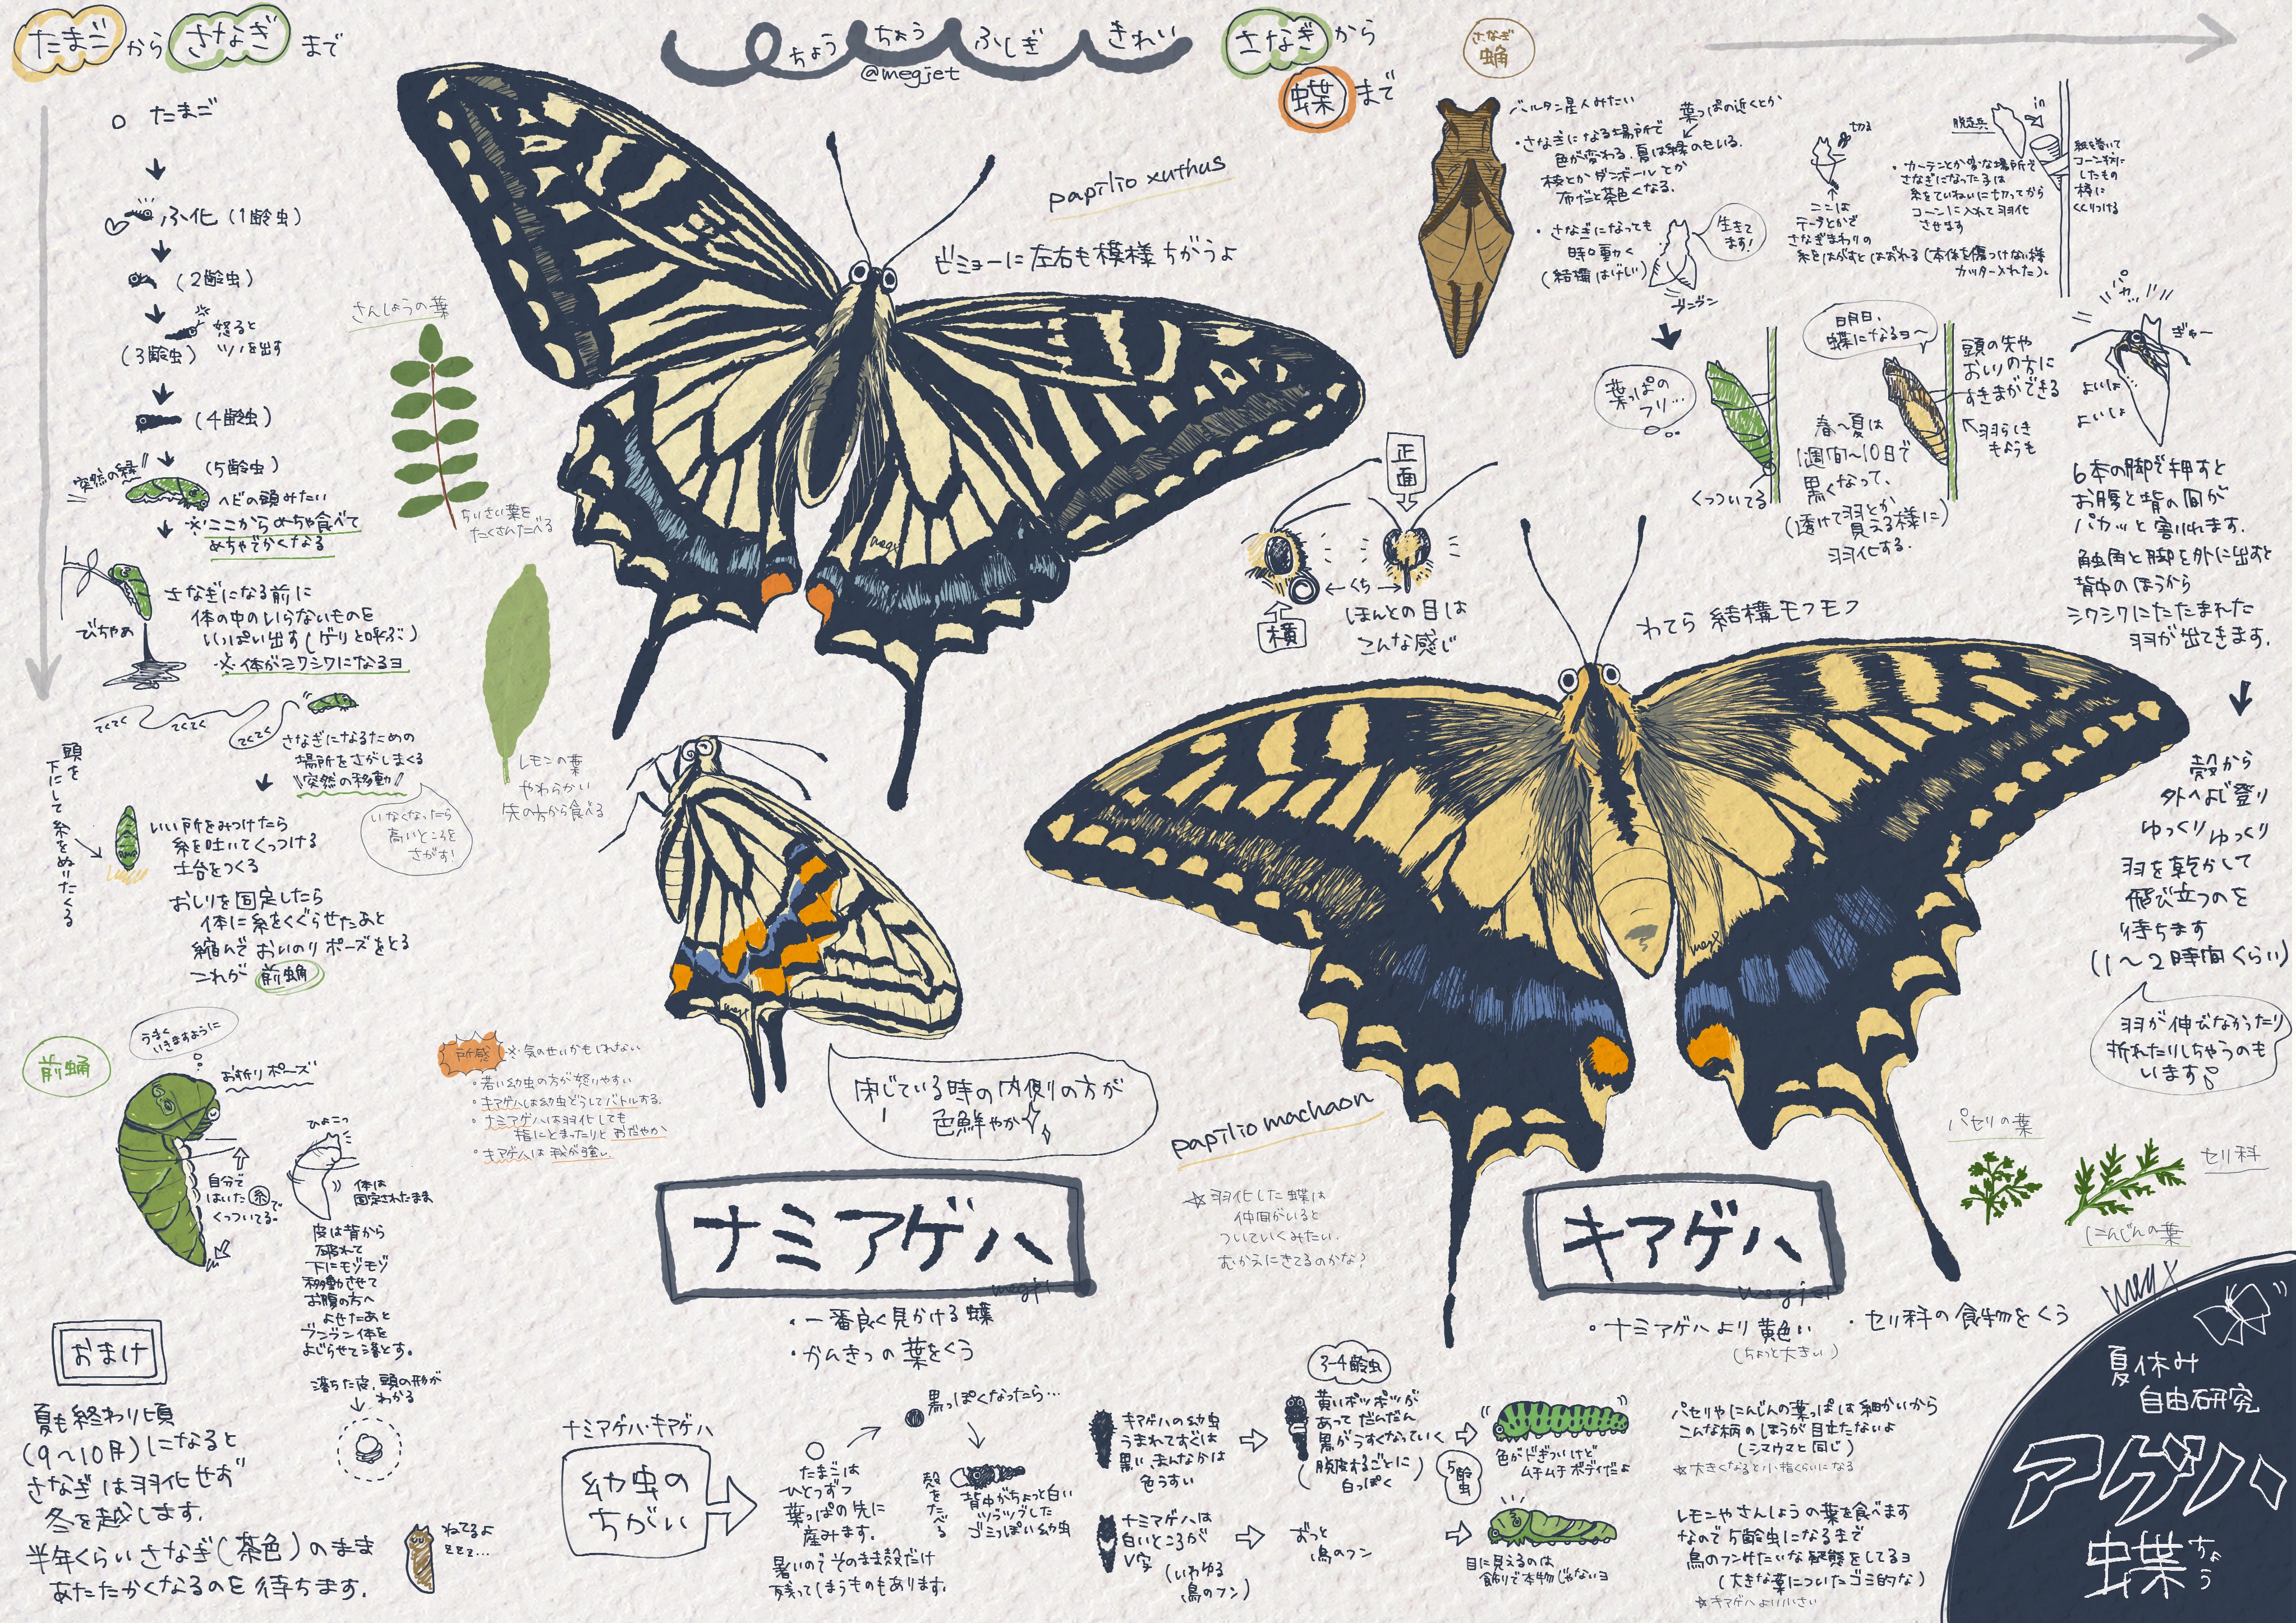 たまごからさなぎまで
○ たまご
ふ化(1齢虫)
(2齢虫)
怒ると
ツノを出す
(3齢虫)
(4齢虫)
突然の緑!!
(5齢虫)
ヘビの頭みたい
※ここからめちゃ食べて
めちゃでかくなる
びちゃぁ
さなぎになる前に
体の中のいらないものを
いっぱい出す(ゲリと呼ぶ)
※体がシワシワになるヨ
てくてく
てくてく
てくてく
さなぎになるための
場所をさがしまくる
\\突然の移動//
いなくなったら
高いところを
さがす!
頭を
下にして糸をぬりたくる
いい所をみつけたら
糸を吐いてくっつける
土台をつくる
おしりを固定したら
体に糸をくぐらせたあと
縮んでおいのりポーズをとる
これが前蛹
前蛹
うまく
いきますように
お祈りポーズ
自分で
はいた糸で
くっついてる。
ひょこっ
体は
固定されたまま
皮は背から
破れて
下にモゾモゾ
移動させて
お腹の方へ
よせたあと
ブンブン体を
よじらせて落とす。
落ちた皮、頭の形が
わかる
おまけ
夏も終わり頃
(9〜10月)になると
さなぎは羽化せず
冬を越します。
半年くらいさなぎ(茶色)のまま
あたたかくなるのを待ちます。
ねてるよ
zzz...
さんしょうの葉
ちいさい葉を
たくさんたべる
レモンの葉
やわらかい
先の方から食べる
所感
※気のせいかもしれない
・若い幼虫の方が怒りやすい
・キアゲハは幼虫どうしでバトルする。
・ナミアゲハは羽化しても
指にとまったりとおだやか
・キアゲハは我が強い。
ちょう ちょう ふしぎ きれい
@megjet
papilio xuthus
ビミョーに左右も模様ちがうよ
閉じている時の内側の方が
色鮮やか
ナミアゲハ
megjet
・一番良く見かける蝶
・かんきつの葉をくう
正面
横
←くち→
ほんとの目は
こんな感じ
わてら結構モフモフ
papilio machaon
☆羽化した蝶は
仲間がいると
ついていくみたい。
むかえにきてるのかな?
キアゲハ
megjet
・ナミアゲハより黄色い
(ちょっと大きい)
・セリ科の食物をくう
パセリの葉
セリ科
にんじんの葉
さなぎから
蝶まで
さなぎ
蛹
バルタン星人みたい
葉っぱの近くとか
・さなぎになる場所で
色が変わる。夏は緑のもいる。
枝とかダンボールとか
布だと茶色くなる。
・さなぎになっても
時々動く
(結構はげしい)
生きて
ます!
ブンブン
切る
ここは
テープとかで
さなぎまわりの
糸をはがすとはがれる(本体を傷つけない様
カッター入れたり)
脱走兵
in
・カーテンとか変な場所で
さなぎになった子は
糸をていねいに切ってから
コーンに入れて羽化
させます
紙を巻いて
コーン状に
したもの
棒に
くくりつける
葉っぱの
フリ…
くっついてる
明日、
蝶になるヨ〜
頭の先や
おしりの方に
すきまができる
羽らしき
もようも
春〜夏は
1週間〜10日で
黒くなって、
(透けて羽とか
見える様に)
羽化する。
パカッ
ぎゃー
よいしょ
よいしょ
6本の脚で押すと
お腹と背の間が
パカッと割れます。
触角と脚を外に出すと
背中のほうから
シワシワにたたまれた
羽が出てきます。
殻から
外へよじ登り
ゆっくりゆっくり
羽を乾かして
飛び立つのを
待ちます
(1〜2時間くらい)
羽が伸びなかったり
折れたりしちゃうのも
います
ナミアゲハ・キアゲハ
幼虫の
ちがい
たまごは
ひとつずつ
葉っぱの先に
産みます。
黒っぽくなったら…
殻をたべる
背中がちょっと白い
ツブツブした
ゴミっぽい幼虫
暑いのでそのまま殻だけ
残ってしまうものもあります。
キアゲハの幼虫
うまれてすぐは
黒い、まんなかは
色うすい
3-4齢虫
黄いポツポツが
あってだんだん
黒がうすくなっていく
(脱皮するごとに
白っぽく)
5齢虫
色がドぎついけど
ムチムチボディだよ
パセリやにんじんの葉っぱは細かいから
こんな柄のほうが目立たないよ
(シマウマと同じ)
☆大きくなると小指くらいになる
ナミアゲハは
白いところが
V字
(いわゆる
鳥のフン)
ずっと
鳥のフン
目に見えるのは
飾りで本物じゃないヨ
レモンやさんしょうの葉を食べます
なので5齢虫になるまで
鳥のフンみたいな擬態をしてるヨ
(大きな葉についたゴミ的な)
☆キアゲハより小さい
夏休み
自由研究
アゲハ
蝶
ちょう